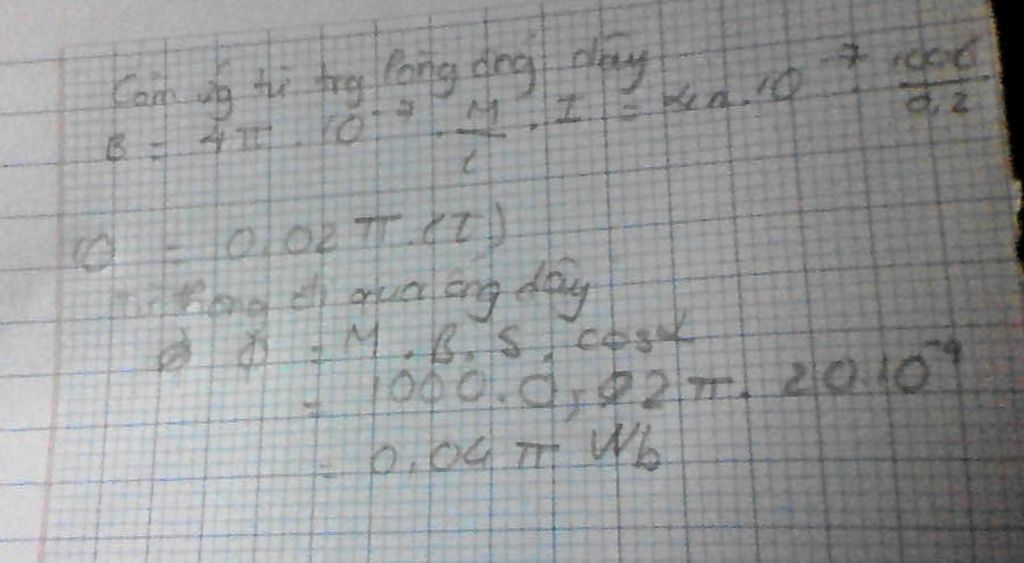 Cảm ứg từ trg lòng ống dây
B = 4π . 10⁻⁷ . N/l . I = 4π . 10⁻⁷ 1000/0,2
= 0.02 π (T)
thông qua ống dây
Φ = N . B . S . cosα
= 1000 . 0,02 π . 20.10⁻⁴
= 0.04 π Wb